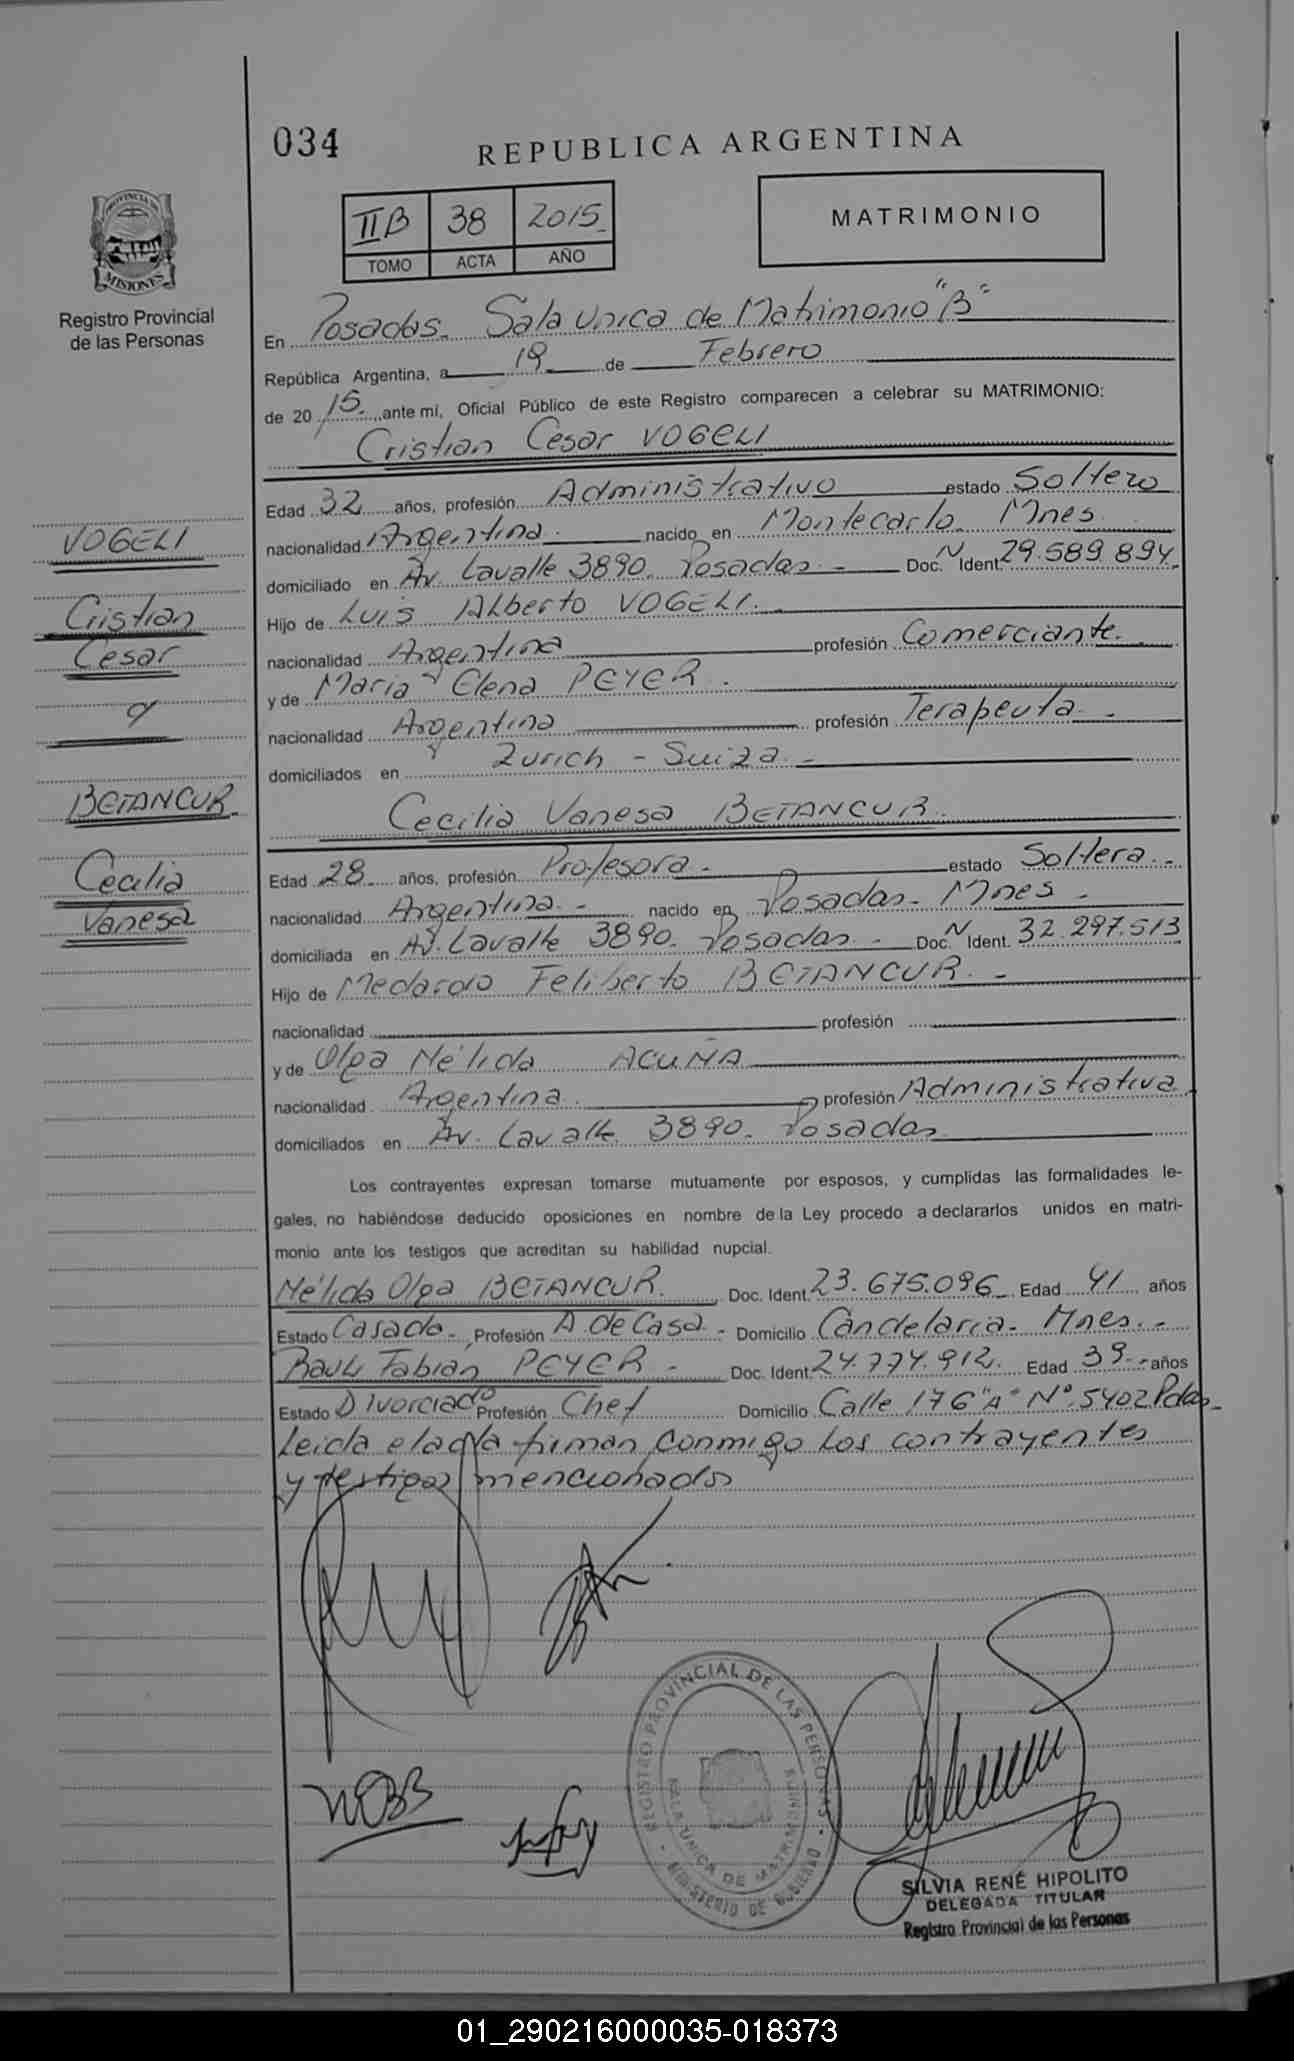 034
REPUBLICA ARGENTINA
PROVINCIA DE
MISIONES
Registro Provincial
de las Personas
IIB 38 2015
TOMO ACTA AÑO
MATRIMONIO
En Posadas. Sala Unica de Matrimonio "B"
República Argentina, a 19 de Febrero
de 20 15. ante mí, Oficial Público de este Registro comparecen a celebrar su MATRIMONIO:
Cristian Cesar VOGELI
Edad 32 años, profesión Administrativo estado Soltero
nacionalidad Argentina nacido en Montecarlo. Mnes
domiciliado en Av. Lavalle 3890. Posadas. - Doc. N Ident. 29.589.894.
Hijo de Luis Alberto VOGELI.
nacionalidad Argentina profesión Comerciante.
y de Maria Elena PEYER.
nacionalidad Argentina profesión Terapeuta. -
domiciliados en Zurich - Suiza. -
Cecilia Vanesa BETANCUR.
Edad 28 años, profesión Profesora. - estado Soltera. -
nacionalidad Argentina. - nacido en Posadas. Mnes -
domiciliada en Av. Lavalle 3890. Posadas. - Doc. N Ident. 32.297.513
Hijo de Medardo Feliberto BETANCUR. -
nacionalidad profesión
y de Olga Nélida ACUÑA
nacionalidad Argentina. profesión Administrativa.
domiciliados en Av. Lavalle 3890. Posadas
Los contrayentes expresan tomarse mutuamente por esposos, y cumplidas las formalidades le-
gales, no habiéndose deducido oposiciones en nombre de la Ley procedo a declararlos unidos en matri-
monio ante los testigos que acreditan su habilidad nupcial.
Nélida Olga BETANCUR. Doc. Ident. 23.675.096 Edad 41 años
Estado Casada. Profesión A de Casa. - Domicilio Candelaria. Mnes. -
Raul Fabian PEYER - Doc. Ident. 24.774.912. Edad 39 años
Estado Divorciado Profesión Chef Domicilio Calle 176 "A" Nº 5402 Pdas
Leida el acta firman conmigo los contrayentes
y testigos mencionados
VOGELI
Cristian
Cesar
y
BETANCUR.
Cecilia
Vanesa
NOBB
REGISTRO PROVINCIAL DE LAS PERSONAS
SALA UNICA DE MATRIMONIOS
MINISTERIO DE GOBIERNO
SILVIA RENÉ HIPOLITO
DELEGADA TITULAR
Registro Provincial de las Personas
01_290216000035-018373